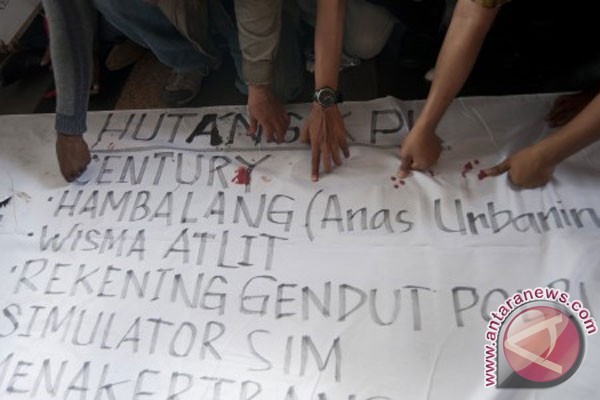 HUTANG KPK
CENTURY
·HAMBALANG (Anas Urbanin
·WISMA ATLIT
·REKENING GENDUT POLRI
SIMULATOR SIM
MENAKERTRANS
www.antaranews.com